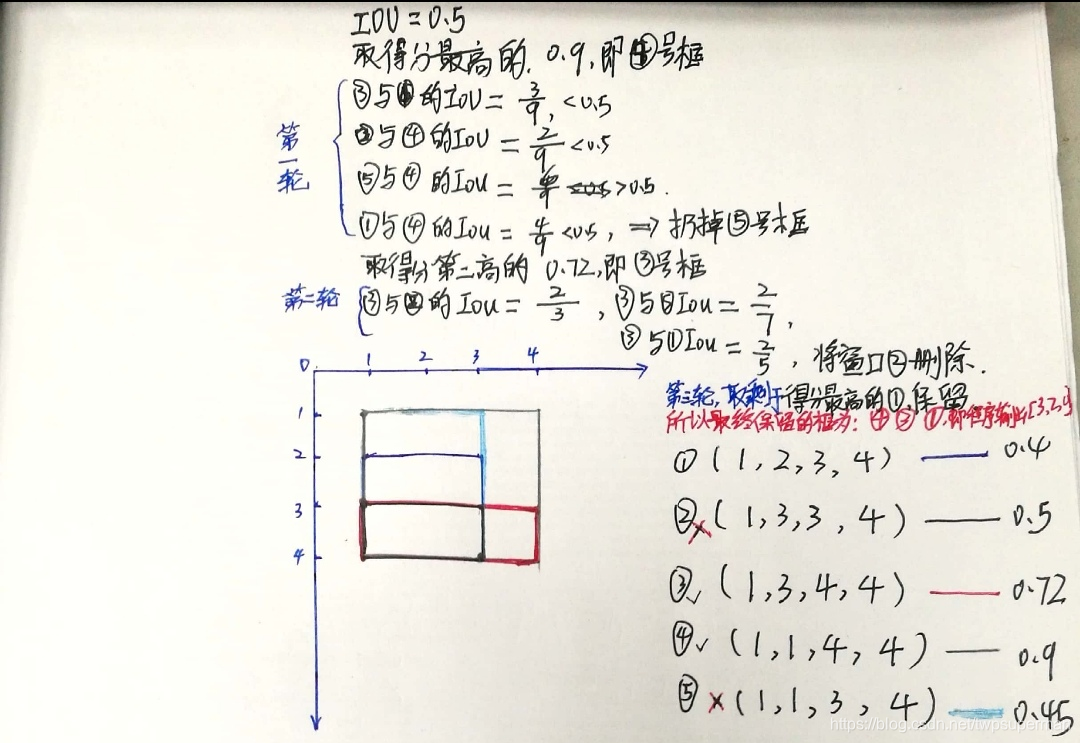 IOU = 0.5
取得分最高的. 0.9, 即④号框
第一轮
③与④的IoU = 3/9, <0.5
②与④的IoU = 2/9 <0.5
⑤与④的IoU = >0.5.
①与④的IoU = 4/9 <0.5, ⇒ 扔掉⑤号框
取得分第二高的 0.72, 即③号框
第二轮
③与②的IoU = 2/3, ③与 IoU = 2/7,
③与①IoU = 2/5, 将窗口②删除.
第三轮, 取剩于得分最高的①, 保留
所以最终保留的框为: ④ ③ ①, 即程序输出[3,2,
0 1 2 3 4
1
2
3
4
① (1, 2, 3, 4) —— 0.4
② × (1, 3, 3, 4) —— 0.5
③ ✓ (1, 3, 4, 4) —— 0.72
④ ✓ (1, 1, 4, 4) —— 0.9
⑤ × (1, 1, 3, 4) —— 0.45
https://blog.csdn.net/twpsuperman